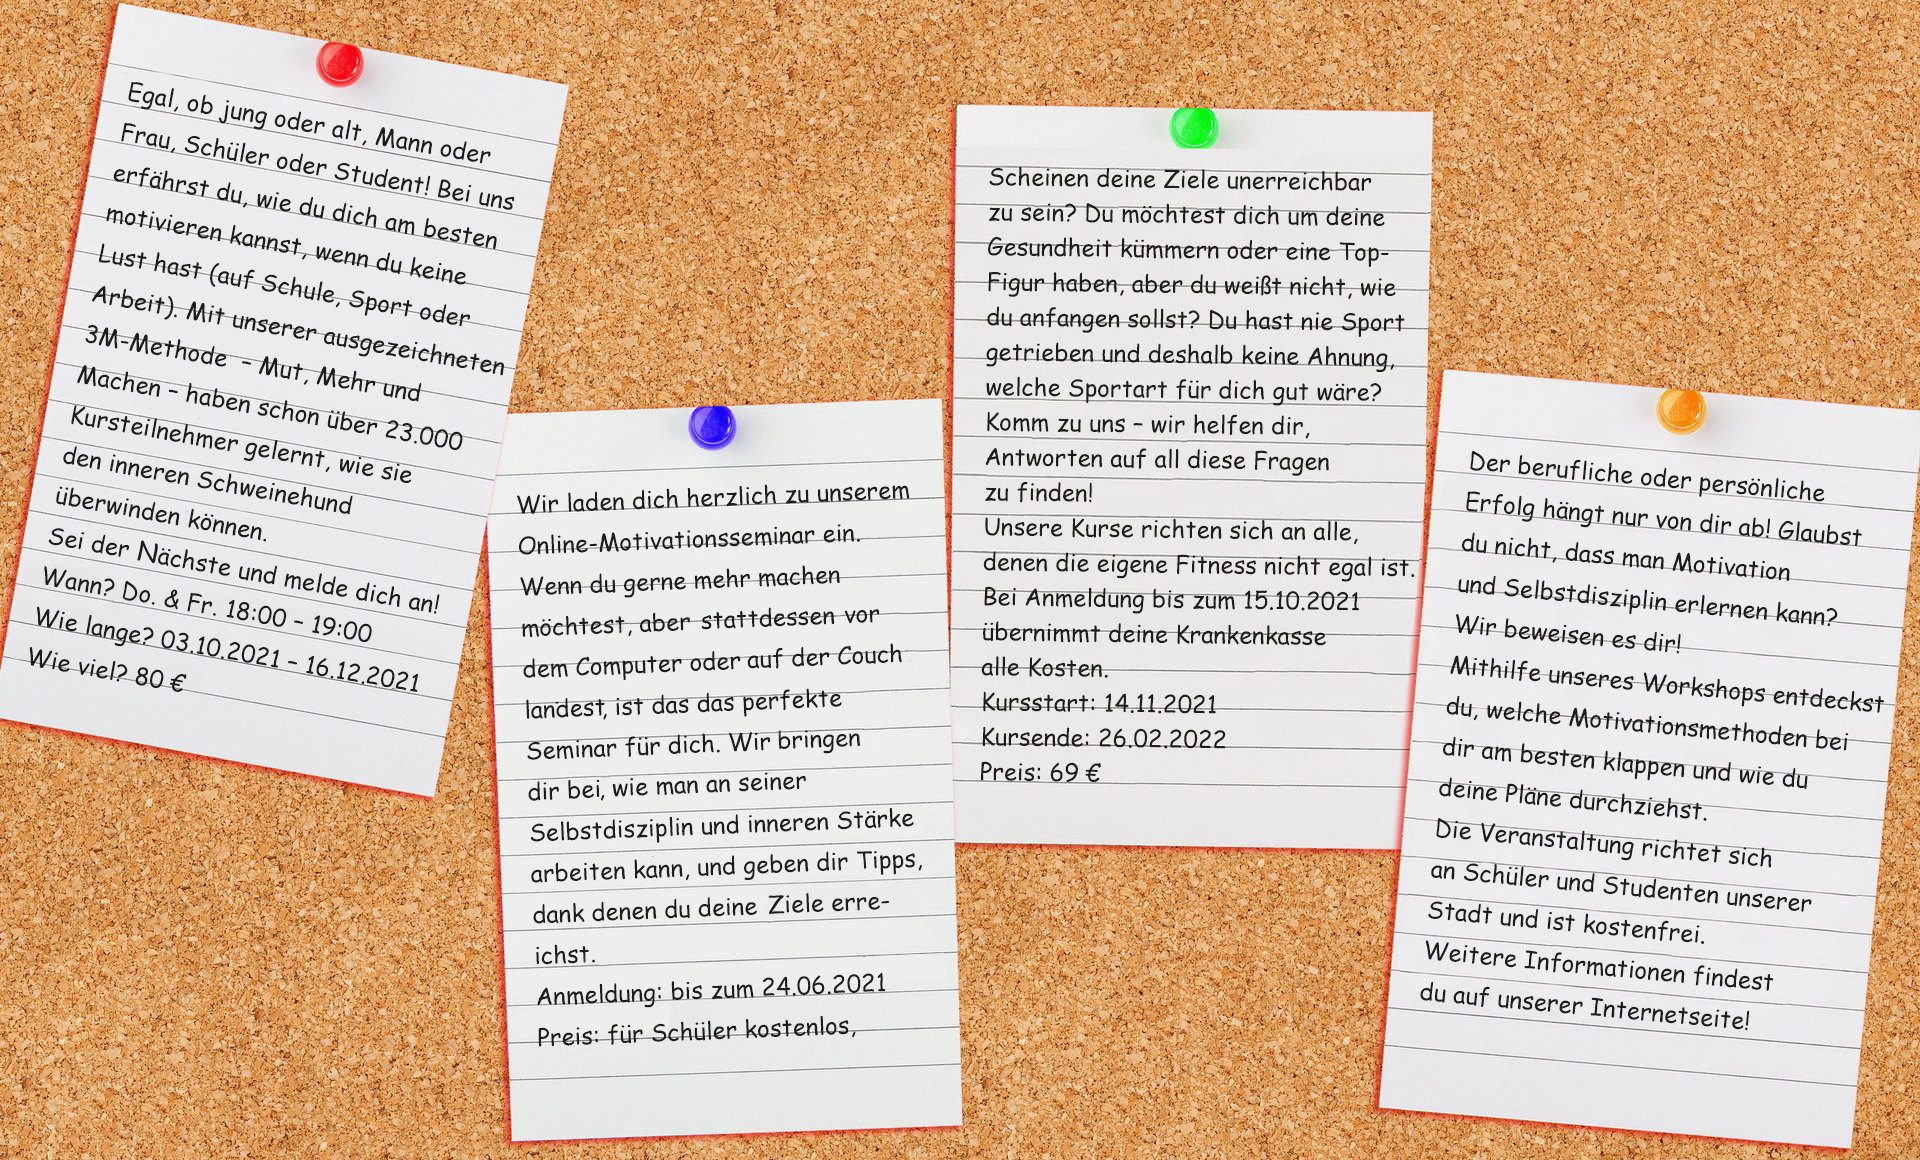 Egal, ob jung oder alt, Mann oder
Frau, Schüler oder Student! Bei uns
erfährst du, wie du dich am besten
motivieren kannst, wenn du keine
Lust hast (auf Schule, Sport oder
Arbeit). Mit unserer ausgezeichneten
3M-Methode – Mut, Mehr und
Machen – haben schon über 23.000
Kursteilnehmer gelernt, wie sie
den inneren Schweinehund
überwinden können.
Sei der Nächste und melde dich an!
Wann? Do. & Fr. 18:00 – 19:00
Wie lange? 03.10.2021 – 16.12.2021
Wie viel? 80 €
Wir laden dich herzlich zu unserem
Online-Motivationsseminar ein.
Wenn du gerne mehr machen
möchtest, aber stattdessen vor
dem Computer oder auf der Couch
landest, ist das das perfekte
Seminar für dich. Wir bringen
dir bei, wie man an seiner
Selbstdisziplin und inneren Stärke
arbeiten kann, und geben dir Tipps,
dank denen du deine Ziele erre-
ichst.
Anmeldung: bis zum 24.06.2021
Preis: für Schüler kostenlos,
Scheinen deine Ziele unerreichbar
zu sein? Du möchtest dich um deine
Gesundheit kümmern oder eine Top-
Figur haben, aber du weißt nicht, wie
du anfangen sollst? Du hast nie Sport
getrieben und deshalb keine Ahnung,
welche Sportart für dich gut wäre?
Komm zu uns – wir helfen dir,
Antworten auf all diese Fragen
zu finden!
Unsere Kurse richten sich an alle,
denen die eigene Fitness nicht egal ist.
Bei Anmeldung bis zum 15.10.2021
übernimmt deine Krankenkasse
alle Kosten.
Kursstart: 14.11.2021
Kursende: 26.02.2022
Preis: 69 €
Der berufliche oder persönliche
Erfolg hängt nur von dir ab! Glaubst
du nicht, dass man Motivation
und Selbstdisziplin erlernen kann?
Wir beweisen es dir!
Mithilfe unseres Workshops entdeckst
du, welche Motivationsmethoden bei
dir am besten klappen und wie du
deine Pläne durchziehst.
Die Veranstaltung richtet sich
an Schüler und Studenten unserer
Stadt und ist kostenfrei.
Weitere Informationen findest
du auf unserer Internetseite!